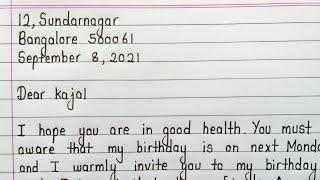 12, Sundarnagar
Bangalore 560061
September 8, 2021
Dear kajal
I hope you are in good health. You must
aware that my birthday is on next Monda
and I warmly invite you to my birthday